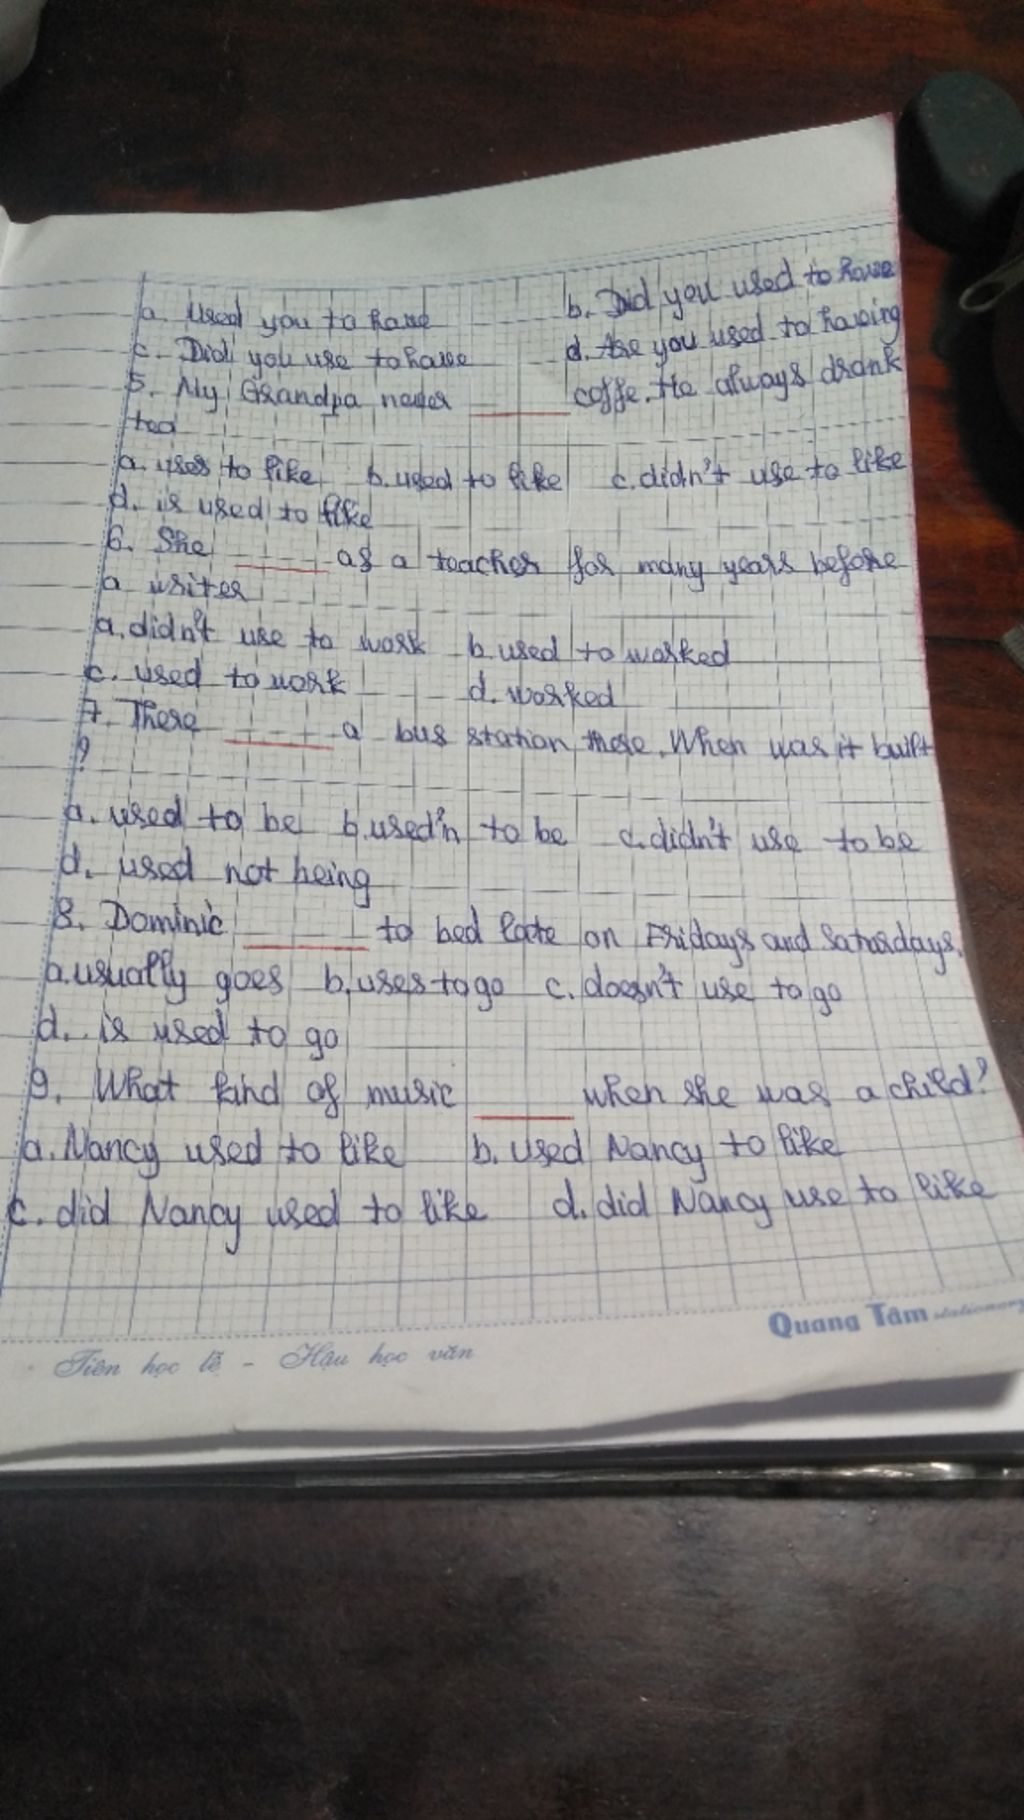 a. Used you to have b. Did you used to have
c. Did you use to have d. Are you used to having
5. My Grandpa never ____ coffe. He always drank
tea
a. uses to like b. used to like c. didn't use to like
d. is used to like
6. She ____ as a teacher for many years before
a writer
a. didn't use to work b. used to worked
c. used to work d. worked
7. There ____ a bus station there. When was it built
?
a. used to be b. used'n to be c. didn't use to be
d. used not being
8. Dominic ____ to bed late on Fridays and Saturdays.
a. usually goes b. uses to go c. doesn't use to go
d. is used to go
9. What kind of music ____ when she was a child?
a. Nancy used to like b. used Nancy to like
c. did Nancy used to like d. did Nancy use to like
Quang Tâm stationery
Tiên học lễ - Hậu học văn